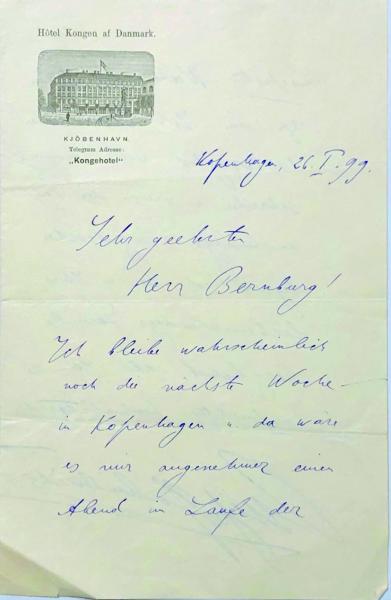 Hôtel Kongen af Danmark.
KJÖBENHAVN.
Telegram Adresse:
„Kongehotel"
Kopenhagen, 26. I. 99.
Sehr geehrter
Herr Bernburg!
Ich bleibe wahrscheinlich
noch die nächste Woche
in Kopenhagen u. da wäre
es mir angenehmer einen
Abend in Laufe der